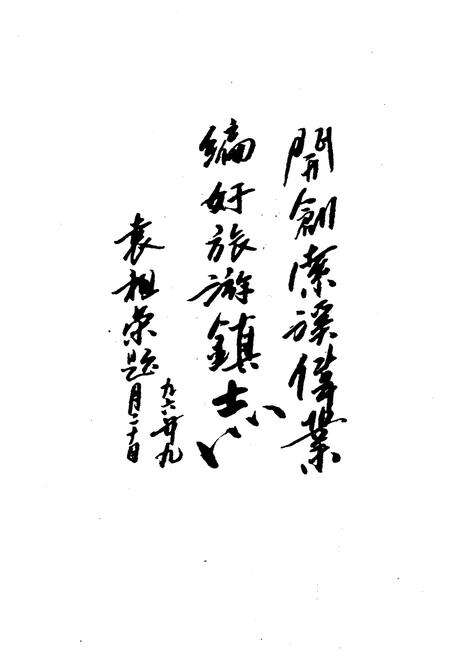 開創索溪偉業
編好旅游鎮志
袁祖荣題
九六年九
月二十日